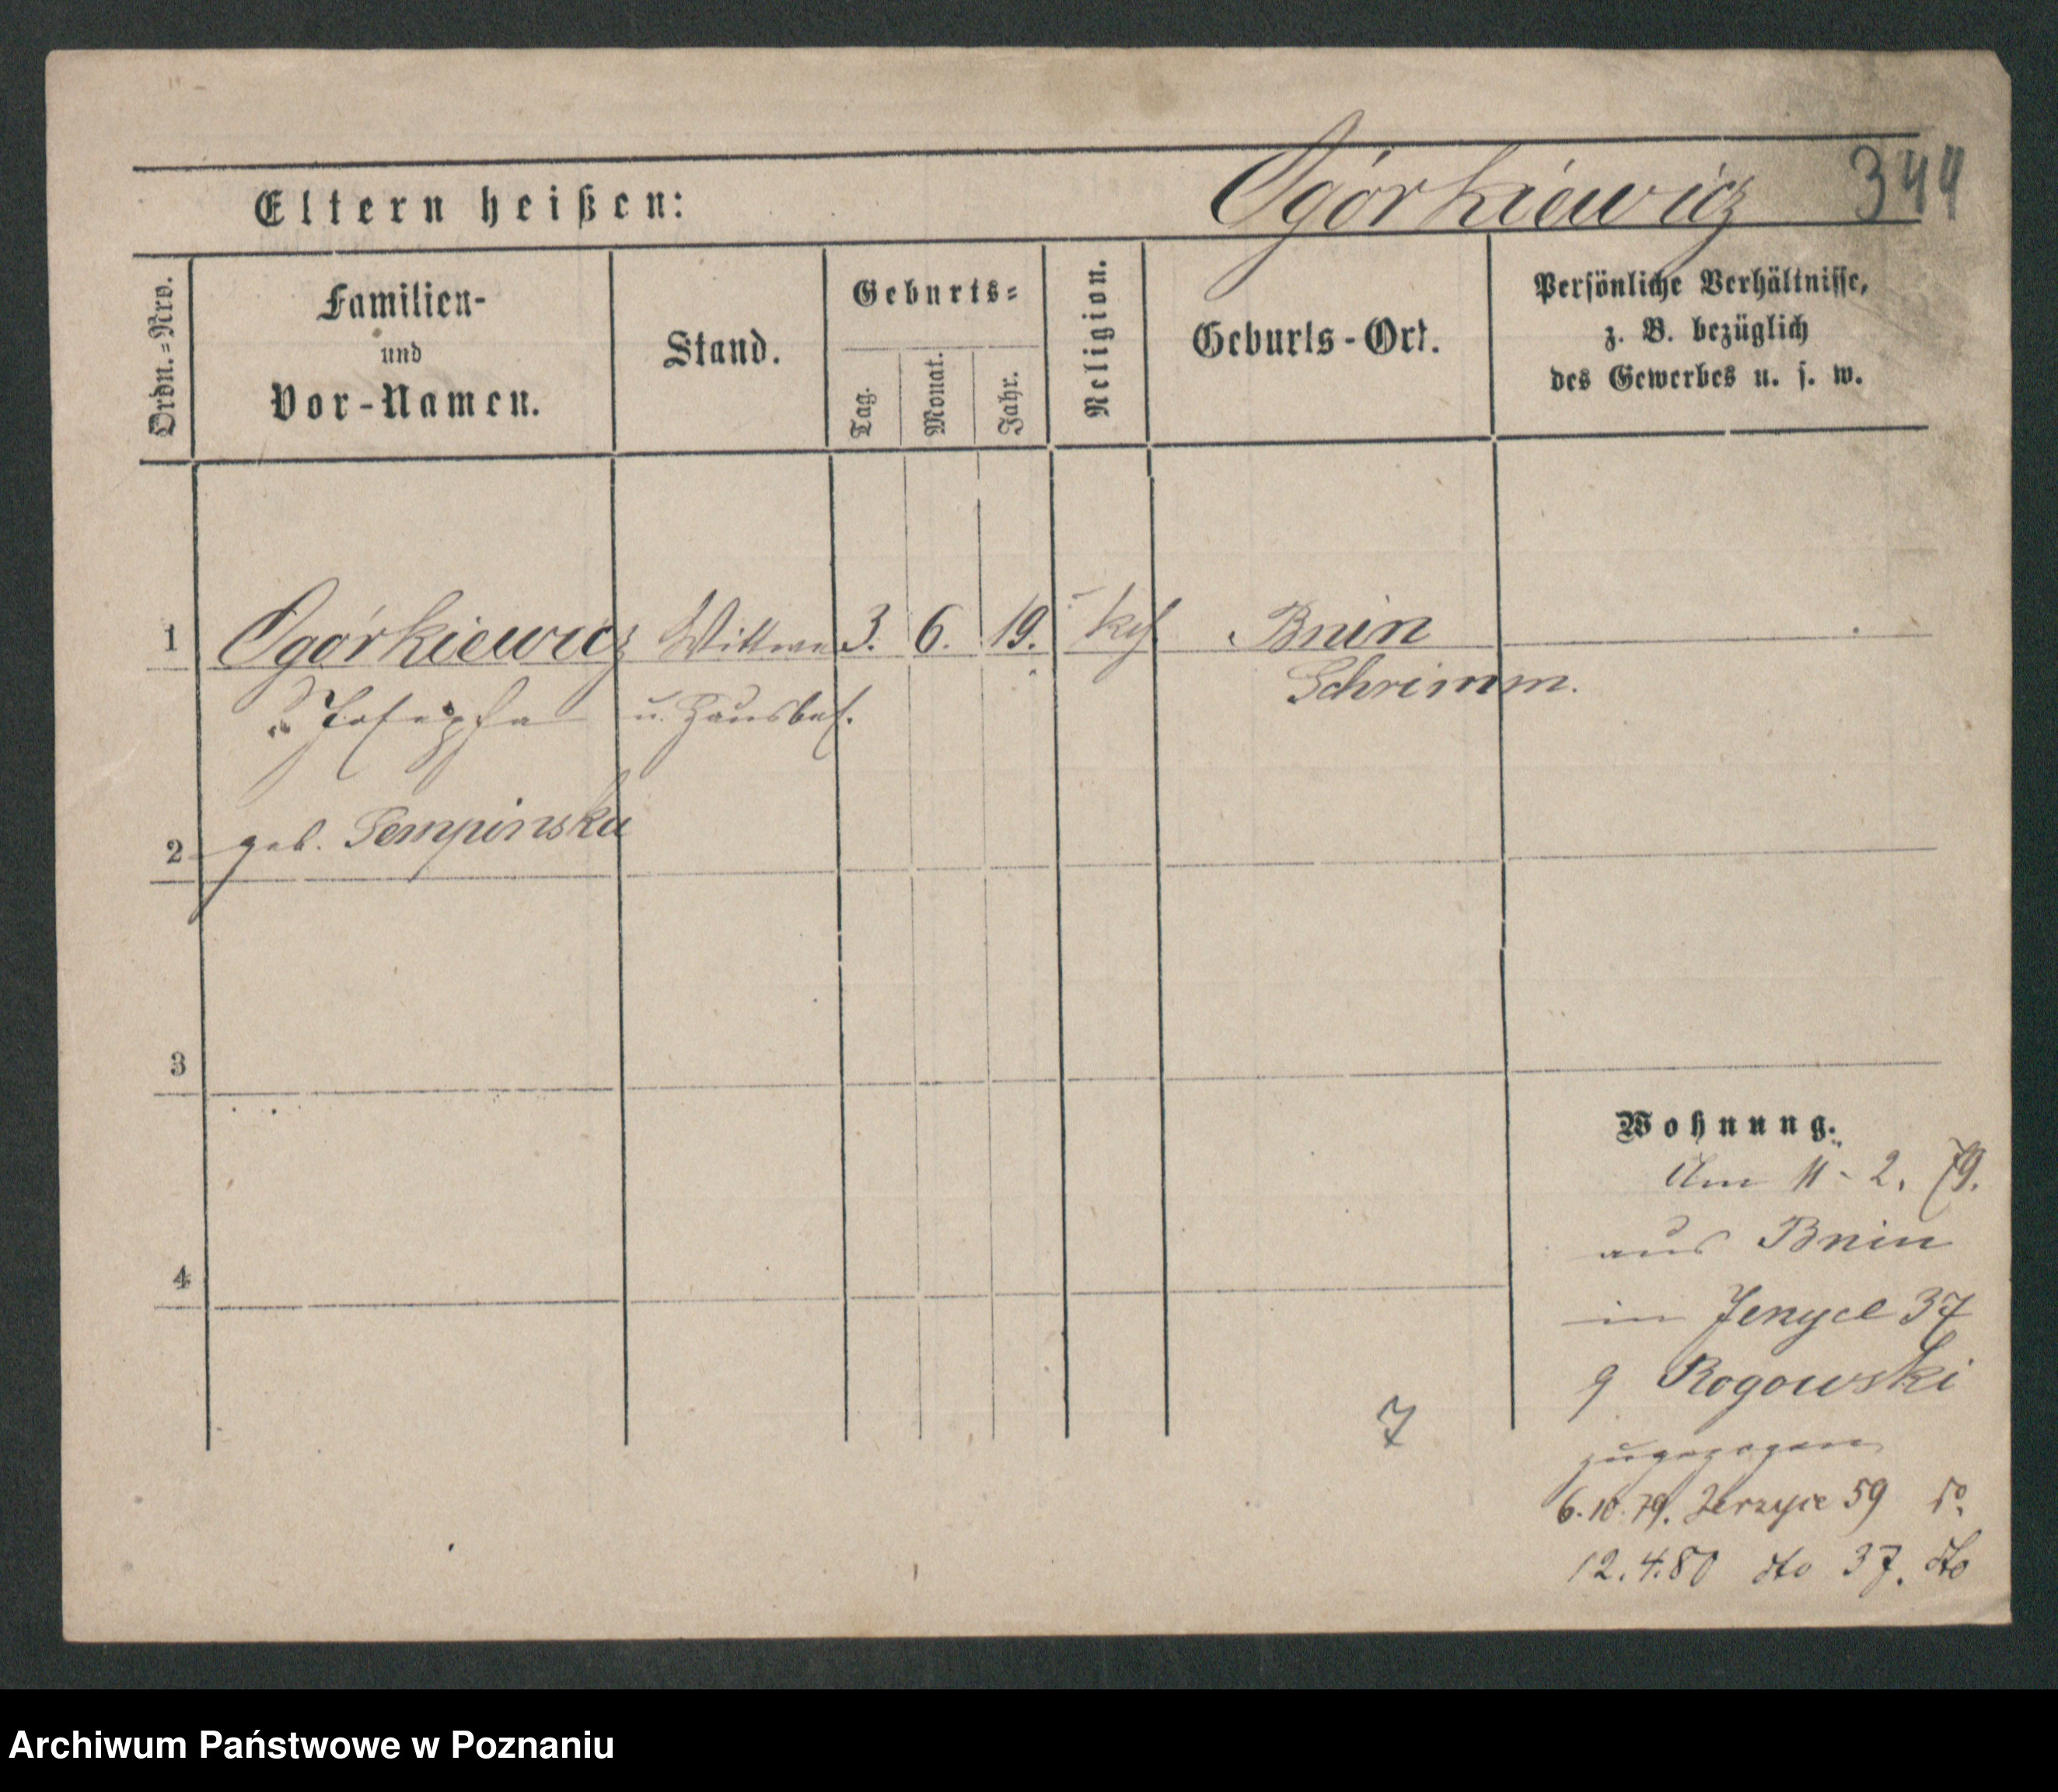 344
Eltern heißen: Ogórkiewicz
Ordn.=Nro.
Familien-
und
Vor-Namen.
Stand.
Geburts=
Tag.
Monat.
Jahr.
Religion.
Geburts-Ort.
Persönliche Verhältnisse,
z. B. bezüglich
des Gewerbes u. s. w.
1 Ogórkiewicz Wittwe 3. 6. 19. kath Bnin
Schrimm.
Josepha u. Hausbes.
2 geb. Sempinska
3
Wohnung.
Am 11-2. 79.
aus Bnin
4
in Jerzyce 37
Rogowski
7
zugezogen
6.10.79. Jerzyce 59
12.4.80 dto 37. dto
Archiwum Państwowe w Poznaniu